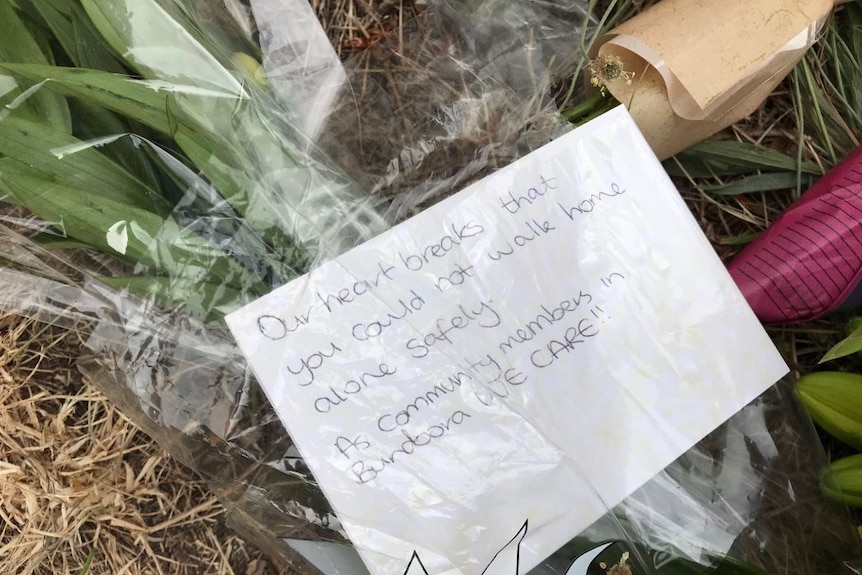 Our heart breaks that
you could not walk home
alone safely.
As community members in
Bundoora WE CARE!!